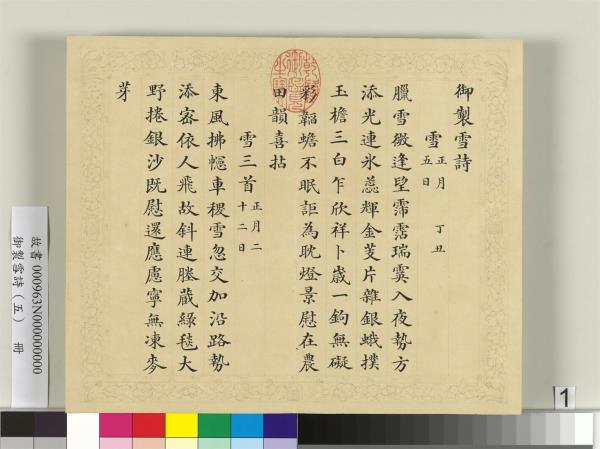 御製雪詩
雪 正月五日 丁丑
臘雪微逢望霈霑瑞霙入夜勢方
添光連氷蕊輝金芰片雜銀蛾撲
玉檐三白乍欣祥卜歲一鉤無礙
彩韜蟾不眠詎為耽燈景慰在農
田韻喜拈
雪三首 正月二十二日
東風拂幰車稷雪忽交加沿路勢
添密依人飛故斜連塍蔵綠毯大
野捲銀沙既慰還應慮寧無凍麥
芽
乾隆御覽之寶
故書 000963N000000000
御製雪詩（五） 冊
1